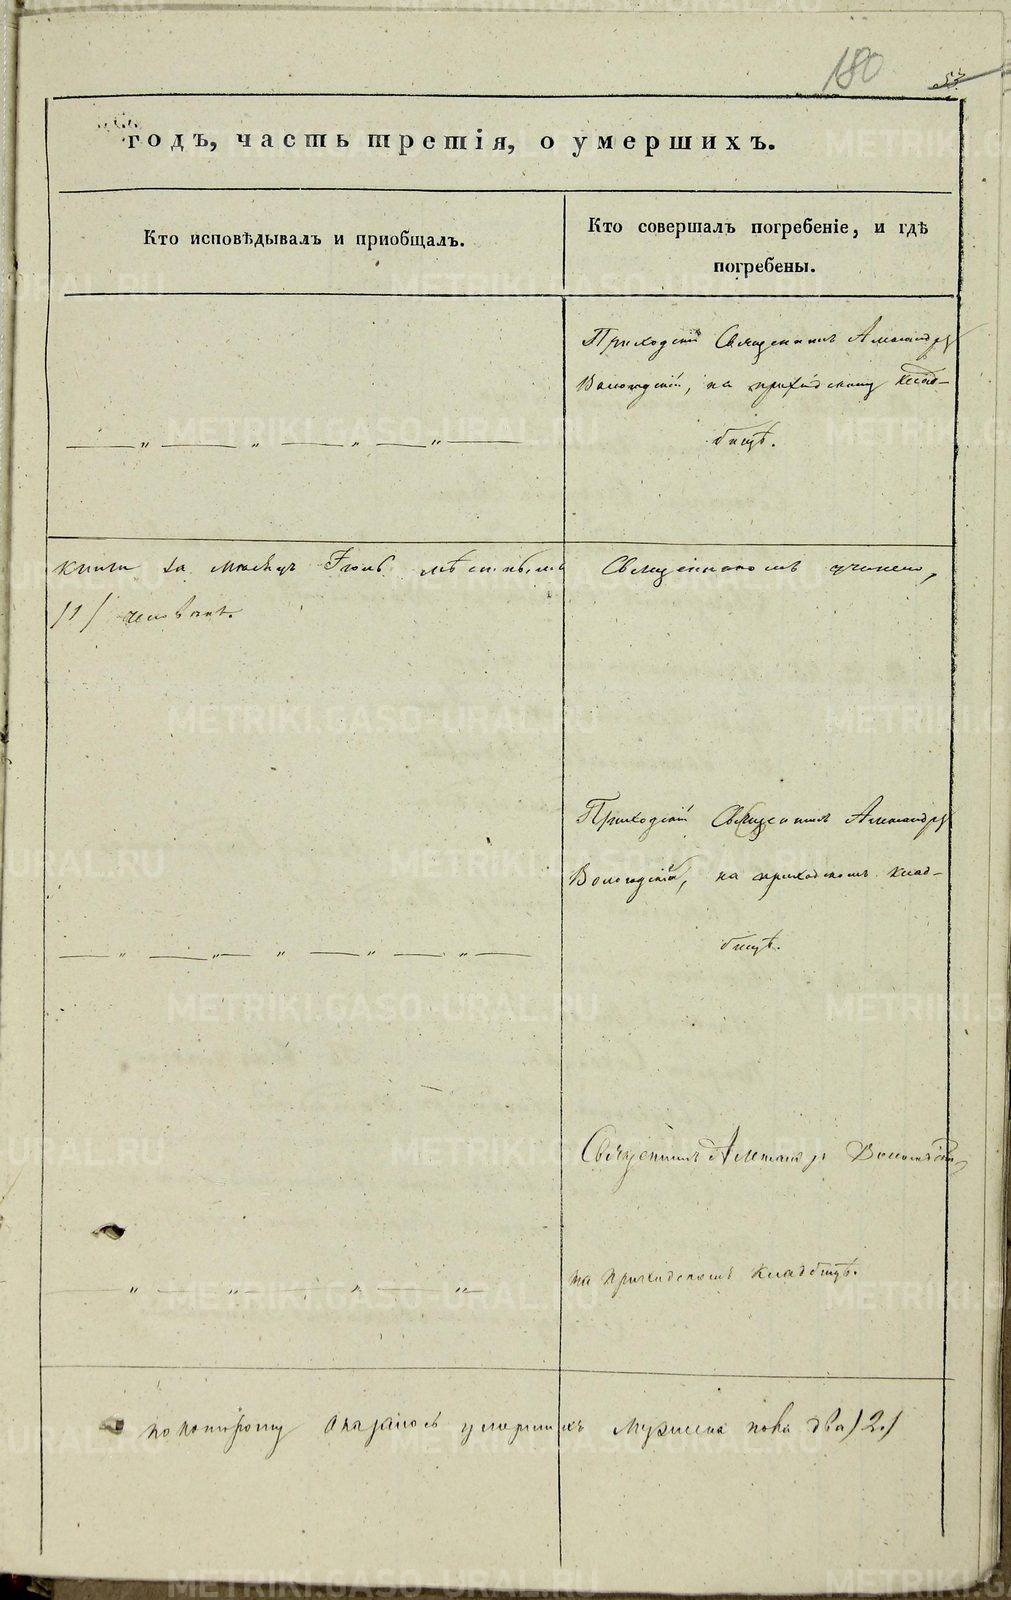 180
53
годъ, часть третія, о умершихъ.
Кто исповѣдывалъ и приобщалъ.
Кто совершалъ погребеніе, и гдѣ
погребены.
Приходскій Священникъ Александръ
Вологодскій, на приходскому клад-
бищѣ.
книги за месяцъ Іюнь мѣстнымъ Священникомъ учинено,
/1/ человѣкъ.
Приходскій Священникъ Александръ
Вологодскій, на приходскомъ клад-
бищѣ.
Священникъ Александръ Вологодскій,
на приходскомъ кладбищѣ.
по которому оказалось умершихъ мужеска пола два /2/
METRIKI.GASO-URAL.RU